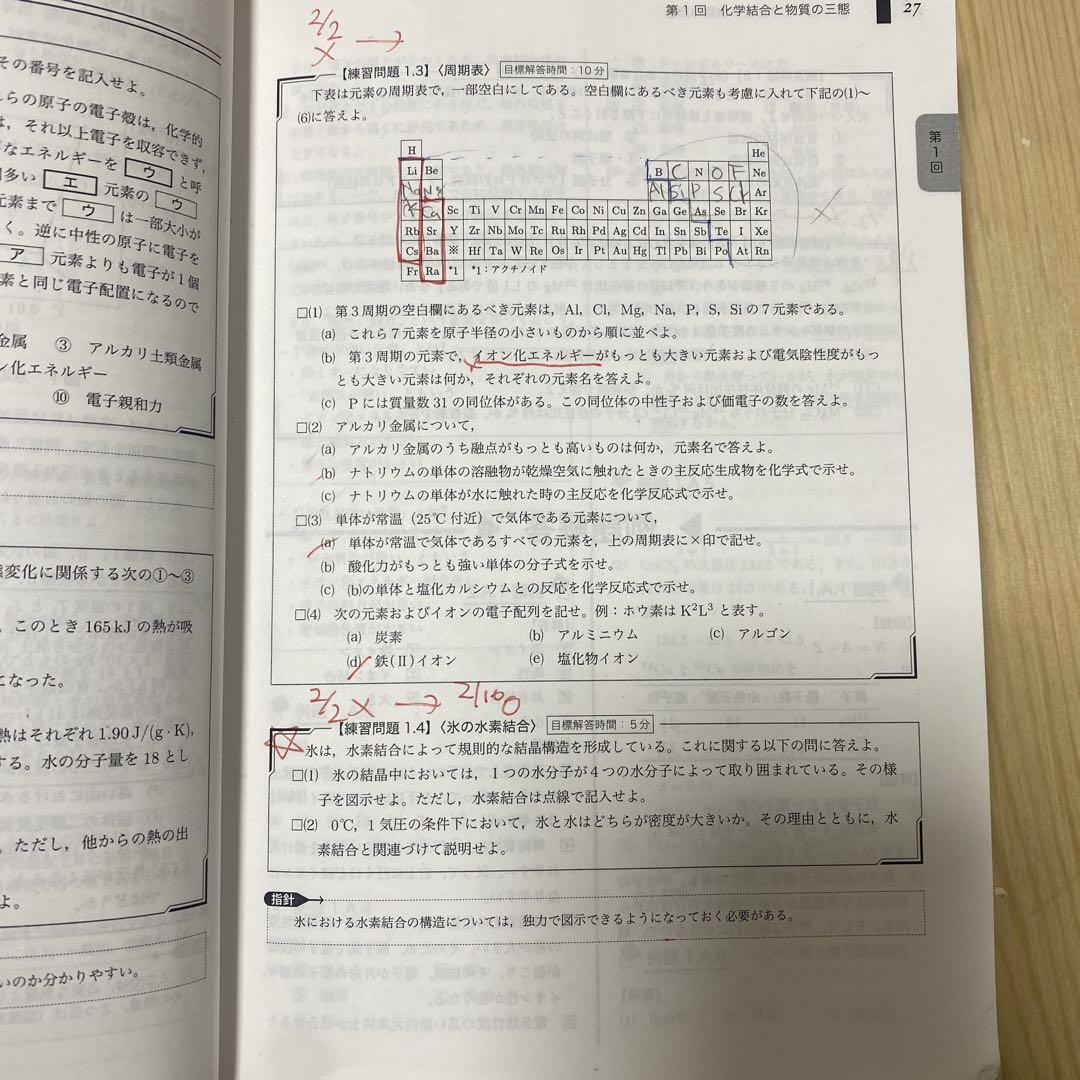 第1回 化学結合と物質の三態 27
2/2
× →
その番号を記入せよ。
れらの原子の電子殻は，化学的
は，それ以上電子を収容できず，
なエネルギーを ウ と呼
多い エ 元素の ウ
元素まで ウ は一部大小が
く。逆に中性の原子に電子を
ア 元素よりも電子が1個
素と同じ電子配置になるので
金属 ③ アルカリ土類金属
ン化エネルギー
⑩ 電子親和力
態変化に関係する次の①〜③
。このとき165kJの熱が吸
になった。
熱はそれぞれ1.90J/(g・K)，
する。水の分子量を18とし
。ただし，他からの熱の出
よ。
いのか分かりやすい。
第1回
【練習問題1.3】〈周期表〉 目標解答時間：10分
下表は元素の周期表で，一部空白にしてある。空白欄にあるべき元素も考慮に入れて下記の(1)〜
(6)に答えよ。
H He
Li Be B C N O F Ne
Na Mg Al Si P S Cl Ar
K Ca Sc Ti V Cr Mn Fe Co Ni Cu Zn Ga Ge As Se Br Kr
Rb Sr Y Zr Nb Mo Tc Ru Rh Pd Ag Cd In Sn Sb Te I Xe
Cs Ba ※ Hf Ta W Re Os Ir Pt Au Hg Tl Pb Bi Po At Rn
Fr Ra *1 *1：アクチノイド
□(1) 第3周期の空白欄にあるべき元素は，Al，Cl，Mg，Na，P，S，Siの7元素である。
(a) これら7元素を原子半径の小さいものから順に並べよ。
(b) 第3周期の元素で，イオン化エネルギーがもっとも大きい元素および電気陰性度がもっ
とも大きい元素は何か，それぞれの元素名を答えよ。
(c) Pには質量数31の同位体がある。この同位体の中性子および価電子の数を答えよ。
□(2) アルカリ金属について，
(a) アルカリ金属のうち融点がもっとも高いものは何か，元素名で答えよ。
(b) ナトリウムの単体の溶融物が乾燥空気に触れたときの主反応生成物を化学式で示せ。
(c) ナトリウムの単体が水に触れた時の主反応を化学反応式で示せ。
□(3) 単体が常温（25℃付近）で気体である元素について，
(a) 単体が常温で気体であるすべての元素を，上の周期表に×印で記せ。
(b) 酸化力がもっとも強い単体の分子式を示せ。
(c) (b)の単体と塩化カルシウムとの反応を化学反応式で示せ。
□(4) 次の元素およびイオンの電子配列を記せ。例：ホウ素はK²L³と表す。
(a) 炭素 (b) アルミニウム (c) アルゴン
(d) 鉄(Ⅱ)イオン (e) 塩化物イオン
2/2 × → 2/10
【練習問題1.4】〈氷の水素結合〉 目標解答時間：5分
氷は，水素結合によって規則的な結晶構造を形成している。これに関する以下の問に答えよ。
□(1) 氷の結晶中においては，1つの水分子が4つの水分子によって取り囲まれている。その様
子を図示せよ。ただし，水素結合は点線で記入せよ。
□(2) 0℃，1気圧の条件下において，氷と水はどちらが密度が大きいか。その理由とともに，水
素結合と関連づけて説明せよ。
指針
氷における水素結合の構造については，独力で図示できるようになっておく必要がある。